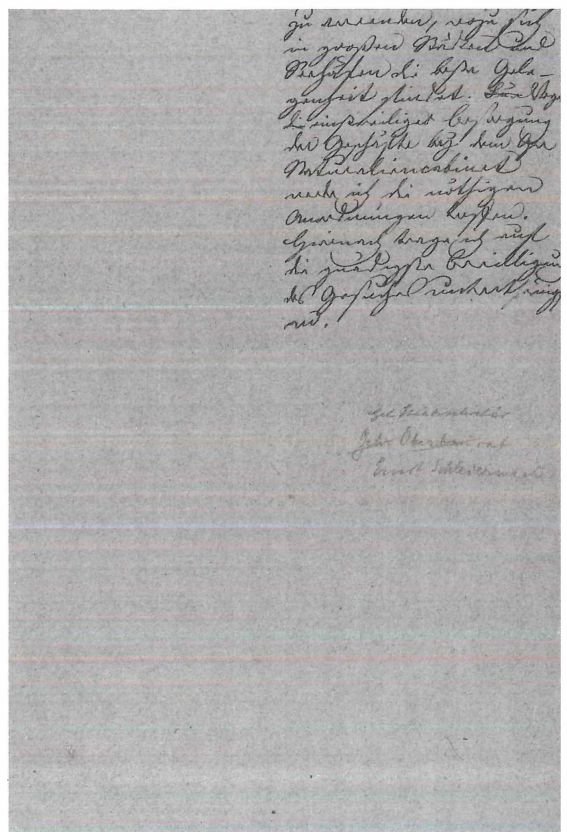 zu verwenden, wozu sich
in großen Städten und
Seehäfen die beste Gele-
genheit findet. Wegen
der einstweiligen Besorgung
der Geschäfte bei dem
Naturaliencabinet
werde ich die nöthigen
Anordnungen treffen.
Hiernach trage ich auf
die gnädigste Bewilligung
des Gesuches unterthänigst
an.
Geh. Kabinettssekretär
Oberbaurat
Ernst Schleiermacher